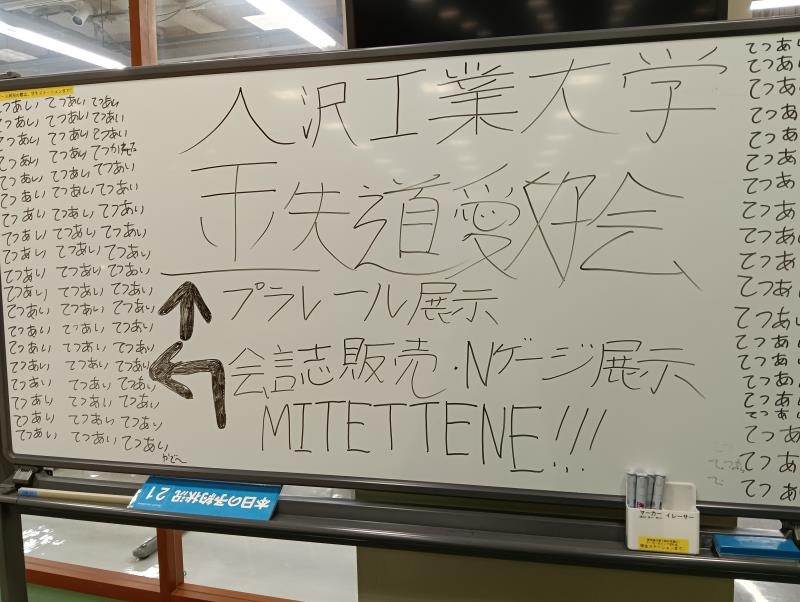 てつあい てつあい てつあい
てつあい てつあい てつあい
てつあい てつあい とつあい
てつあい てつあい
てつあい てつあい てつあい
てつあい てつあい てつあい
てつあい てつあい てつあい
てつあい てつあい てつあい
てつあい てつあい てつあい
てつあい てつあい てつあい
てつあい てつあい てつあい
てつあい てつあい てつあい
てつあい てつあい てつあい
てつあい てつあい てつあい
てつあい てつあい てつあい
てつあい てつあい てつあい
てつあい てつあい てつあい
てつあい てつあい てつあい
てつあい てつあい てつあい
人沢工業大学
王失道愛好会
プラレール展示
会誌販売・Nゲージ展示
MITETTENE!!!
てつあい
てつあい
てつあ
てつあ
てつあ
てつあ
てつあ
てつあ
てつあい
てつあ
てつあ
てつあい
てつあ
てつあ
てつあ
てつあ
てつあ
てつあ
てつあ
てつあ
本日の予約状況 21
マーカー イレーサー